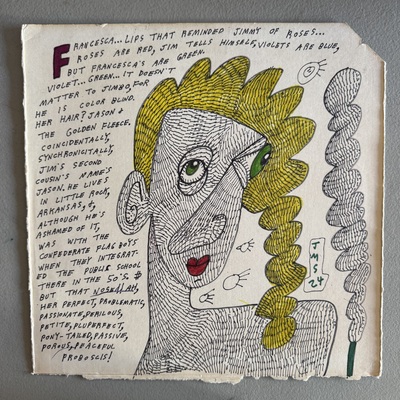 FRANCESCA... LIPS THAT REMINDED JIMMY OF ROSES...
ROSES ARE RED, JIM TELLS HIMSELF, VIOLETS ARE BLUE,
BUT FRANCESCA'S ARE GREEN.
VIOLET... GREEN... IT DOESN'T
MATTER TO JIMBO, FOR
HE IS COLOR BLIND.
HER HAIR? JASON &
THE GOLDEN FLEECE.
COINCIDENTALLY,
SYNCHRONICITALLY,
JIM'S SECOND
COUSIN'S NAME'S
JASON. HE LIVES
IN LITTLE ROCK,
ARKANSAS, &,
ALTHOUGH HE'S
ASHAMED OF IT,
WAS WITH THE
CONFEDERATE FLAG BOYS
WHEN THEY INTEGRAT-
ED THE PUBLIC SCHOOL
THERE IN THE 50'S. &
BUT THAT NOSE! AH,
HER PERFECT, PROBLEMATIC,
PASSIONATE, PERILOUS,
PETITE, PLUPERFECT,
PONY-TAILED, PASSIVE,
POROUS, PEACEFUL
PROBOSCIS!
J
M
S
24